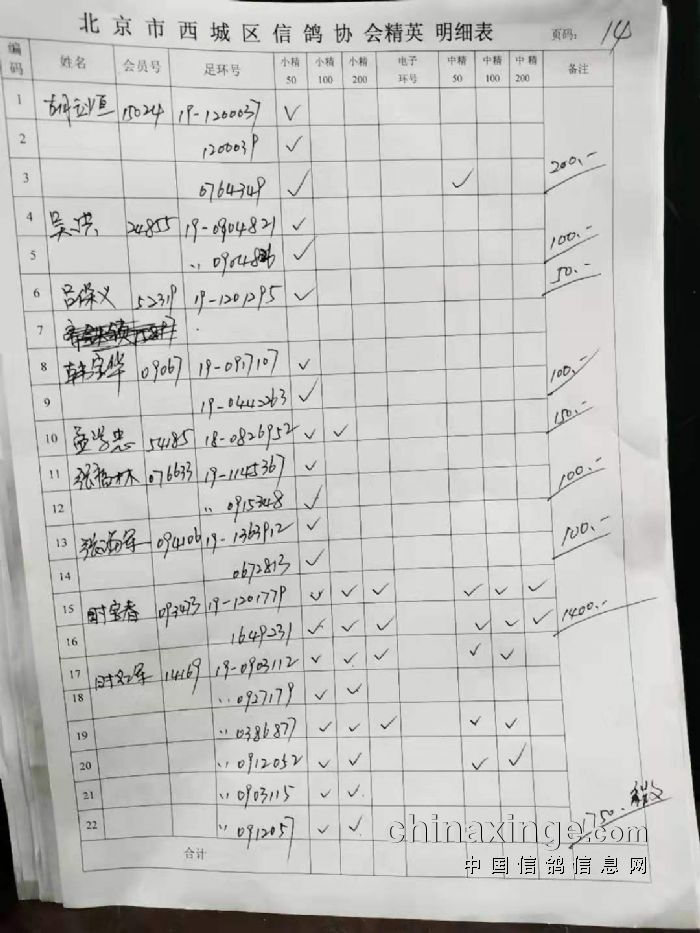 北京市西城区信鸽协会精英 明细表 页码: 14
编码 姓名 会员号 足环号 小精50 小精100 小精200 电子环号 中精50 中精100 中精200 备注
1 15024 19-1200037 ✓
2 1200039 ✓
3 0764349 ✓ ✓ 200.-
4 吴洪 24855 19-0904821 ✓
5 〃 09048 ✓ 100.-
6 吕保义 52319 19-1201295 ✓ 50.-
7
8 韩宝华 09067 19-0917107 ✓
9 19-0442263 ✓ 100.-
10 孟学忠 54185 18-0826952 ✓ ✓ 150.-
11 张福林 076633 19-1145367 ✓
12 〃 0915348 ✓ 100.-
13 张海军 094106 19-1363912 ✓
14 0672813 ✓ 100.-
15 时宝春 093473 19-1201779 ✓ ✓ ✓ ✓ ✓ ✓
16 1649231 ✓ ✓ ✓ ✓ ✓ ✓ 1400.-
17 时红军 14169 19-0903112 ✓ ✓ ✓ ✓ ✓
18 〃 0927179 ✓ ✓
19 〃 0386877 ✓ ✓ ✓ ✓ ✓
20 〃 0912052 ✓ ✓ ✓ ✓
21 〃 0903115 ✓ ✓
22 〃 0912057 ✓ ✓ 1750.-
合计
chinaxinge.com
中国信鸽信息网